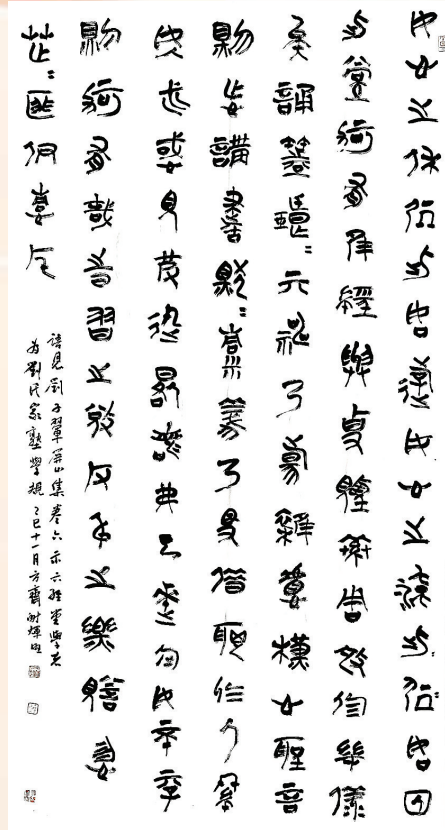 汝心之休處此如遊汝心之流此處如囚
此堂何有維經與史隱索周施於茲備
矣誦書琅琅其神乃揚雜慮橫心聖言
則忘講書默默精義乃得借聰於人終
焉必惑視彼迅晷若弗云來今汝不勉
則何有哉時習之說反身之樂瞻忽
茫茫匪伊情度
語見劉子翬屏山集卷六示六經堂學者
為劉氏家塾學規乙巳十一月方齋